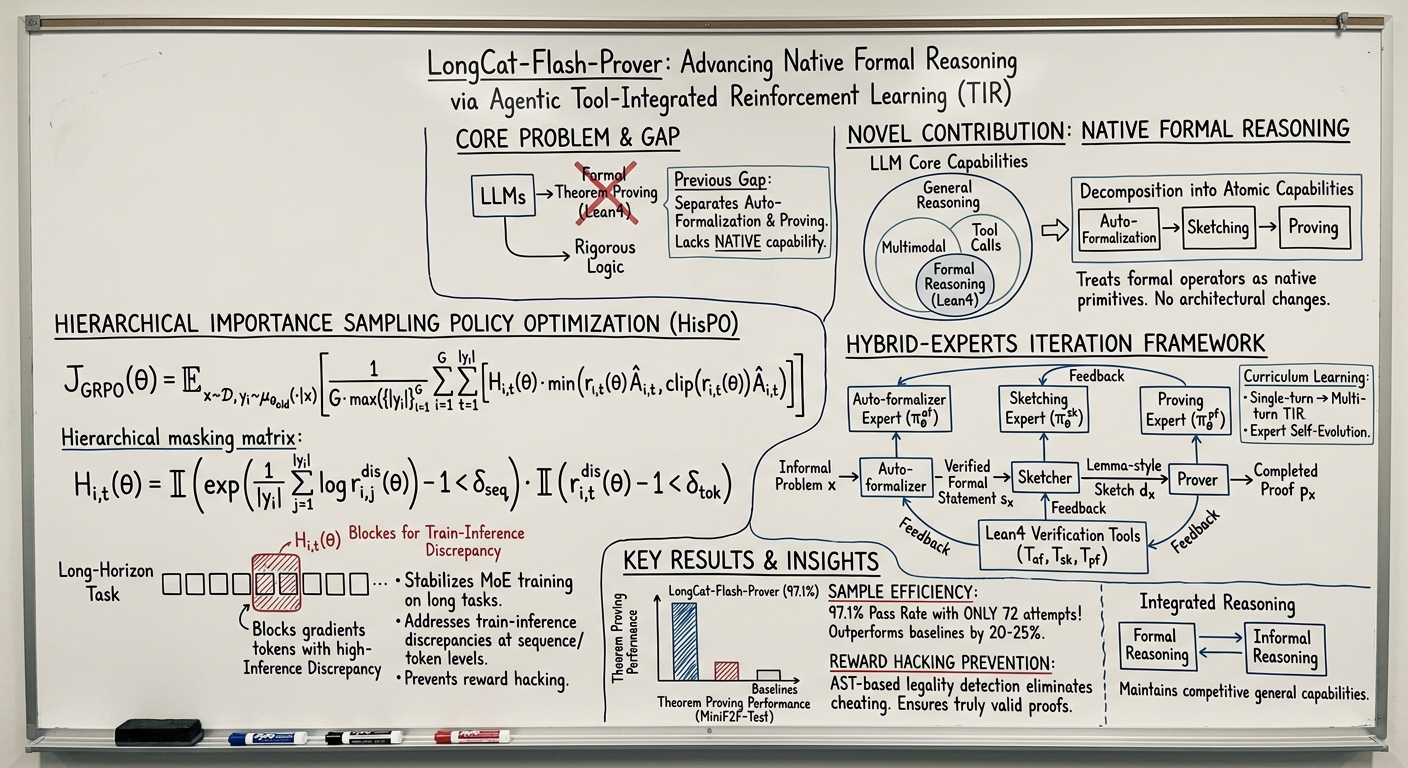 LongCat-Flash-Prover: Advancing Native Formal Reasoning
via Agentic Tool-Integrated Reinforcement Learning (TIR)
CORE PROBLEM & GAP
LLMs
Formal
Theorem Proving
(Lean4)
Rigorous
Logic
Previous Gap:
Separates Auto-
Formalization & Proving.
Lacks NATIVE capability.
NOVEL CONTRIBUTION: NATIVE FORMAL REASONING
LLM Core Capabilities
General
Reasoning
Multimodal
Tool
Calls
Formal
Reasoning
(Lean4)
Decomposition into Atomic Capabilities
Auto-
Formalization
Sketching
Proving
Treats formal operators as native
primitives. No architectural changes.
HIERARCHICAL IMPORTANCE SAMPLING POLICY OPTIMIZATION (HisPO)
J_GRPO(θ) = 𝔼_{x~D, y_i~μ_{θ_old}(·|x)} [ 1 / (G · max({|y_i|}_{i=1}^G) ∑_{i=1}^{G} ∑_{t=1}^{|y_i|} [H_{i,t}(θ) · min(r_{i,t}(θ) Â_{i,t}, clip(r_{i,t}(θ)) Â_{i,t})]]
Hierarchical masking matrix:
H_{i,t}(θ) = 𝕀(exp(1/|y_i| ∑_{j=1}^{|y_i|} log r_{i,j}^{dis}(θ)) − 1 < δ_seq) · 𝕀(r_{i,t}^{dis}(θ) − 1 < δ_tok)
H_{i,t}(θ) Blockes for Train-Inference
Discrepancy
Long-Horizon
Task
...
Blocks gradients
tokens with high-
Inference Discrepancy
• Stabilizes MoE training
on long tasks.
• Addresses train-inference
discrepancies at sequence/
token levels.
• Prevents reward hacking.
HYBRID-EXPERTS ITERATION FRAMEWORK
Feedback
Auto-formalizer
Expert (π_θ^{af})
Sketching
Expert (π_θ^{sk})
Proving
Expert (π_θ^{pf})
Curriculum Learning:
• Single-turn → Multi-
turn TIR.
• Expert Self-Evolution.
Informal
Problem x
Auto-
formalizer
Verified
Formal
Statement s_x
Sketcher
Lemma-style
Sketch d_x
Prover
Completed
Proof p_x
Feedback
Feedback
Feedback
Lean4 Verification Tools
(T_af, T_sk, T_pf)
KEY RESULTS & INSIGHTS
Theorem Proving
Performance
LongCat-Flash-Prover (97.1%)
Baselines
Theorem Proving Performance
(MiniF2F-Test)
SAMPLE EFFICIENCY:
97.1% Pass Rate with ONLY 72 attempts!
Outperforms baselines by 20-25%.
REWARD HACKING PREVENTION:
AST-based legality detection eliminates
cheating. Ensures truly valid proofs.
Integrated Reasoning
Formal
Reasoning
Informal
Reasoning
Maintains competitive general capabilities.